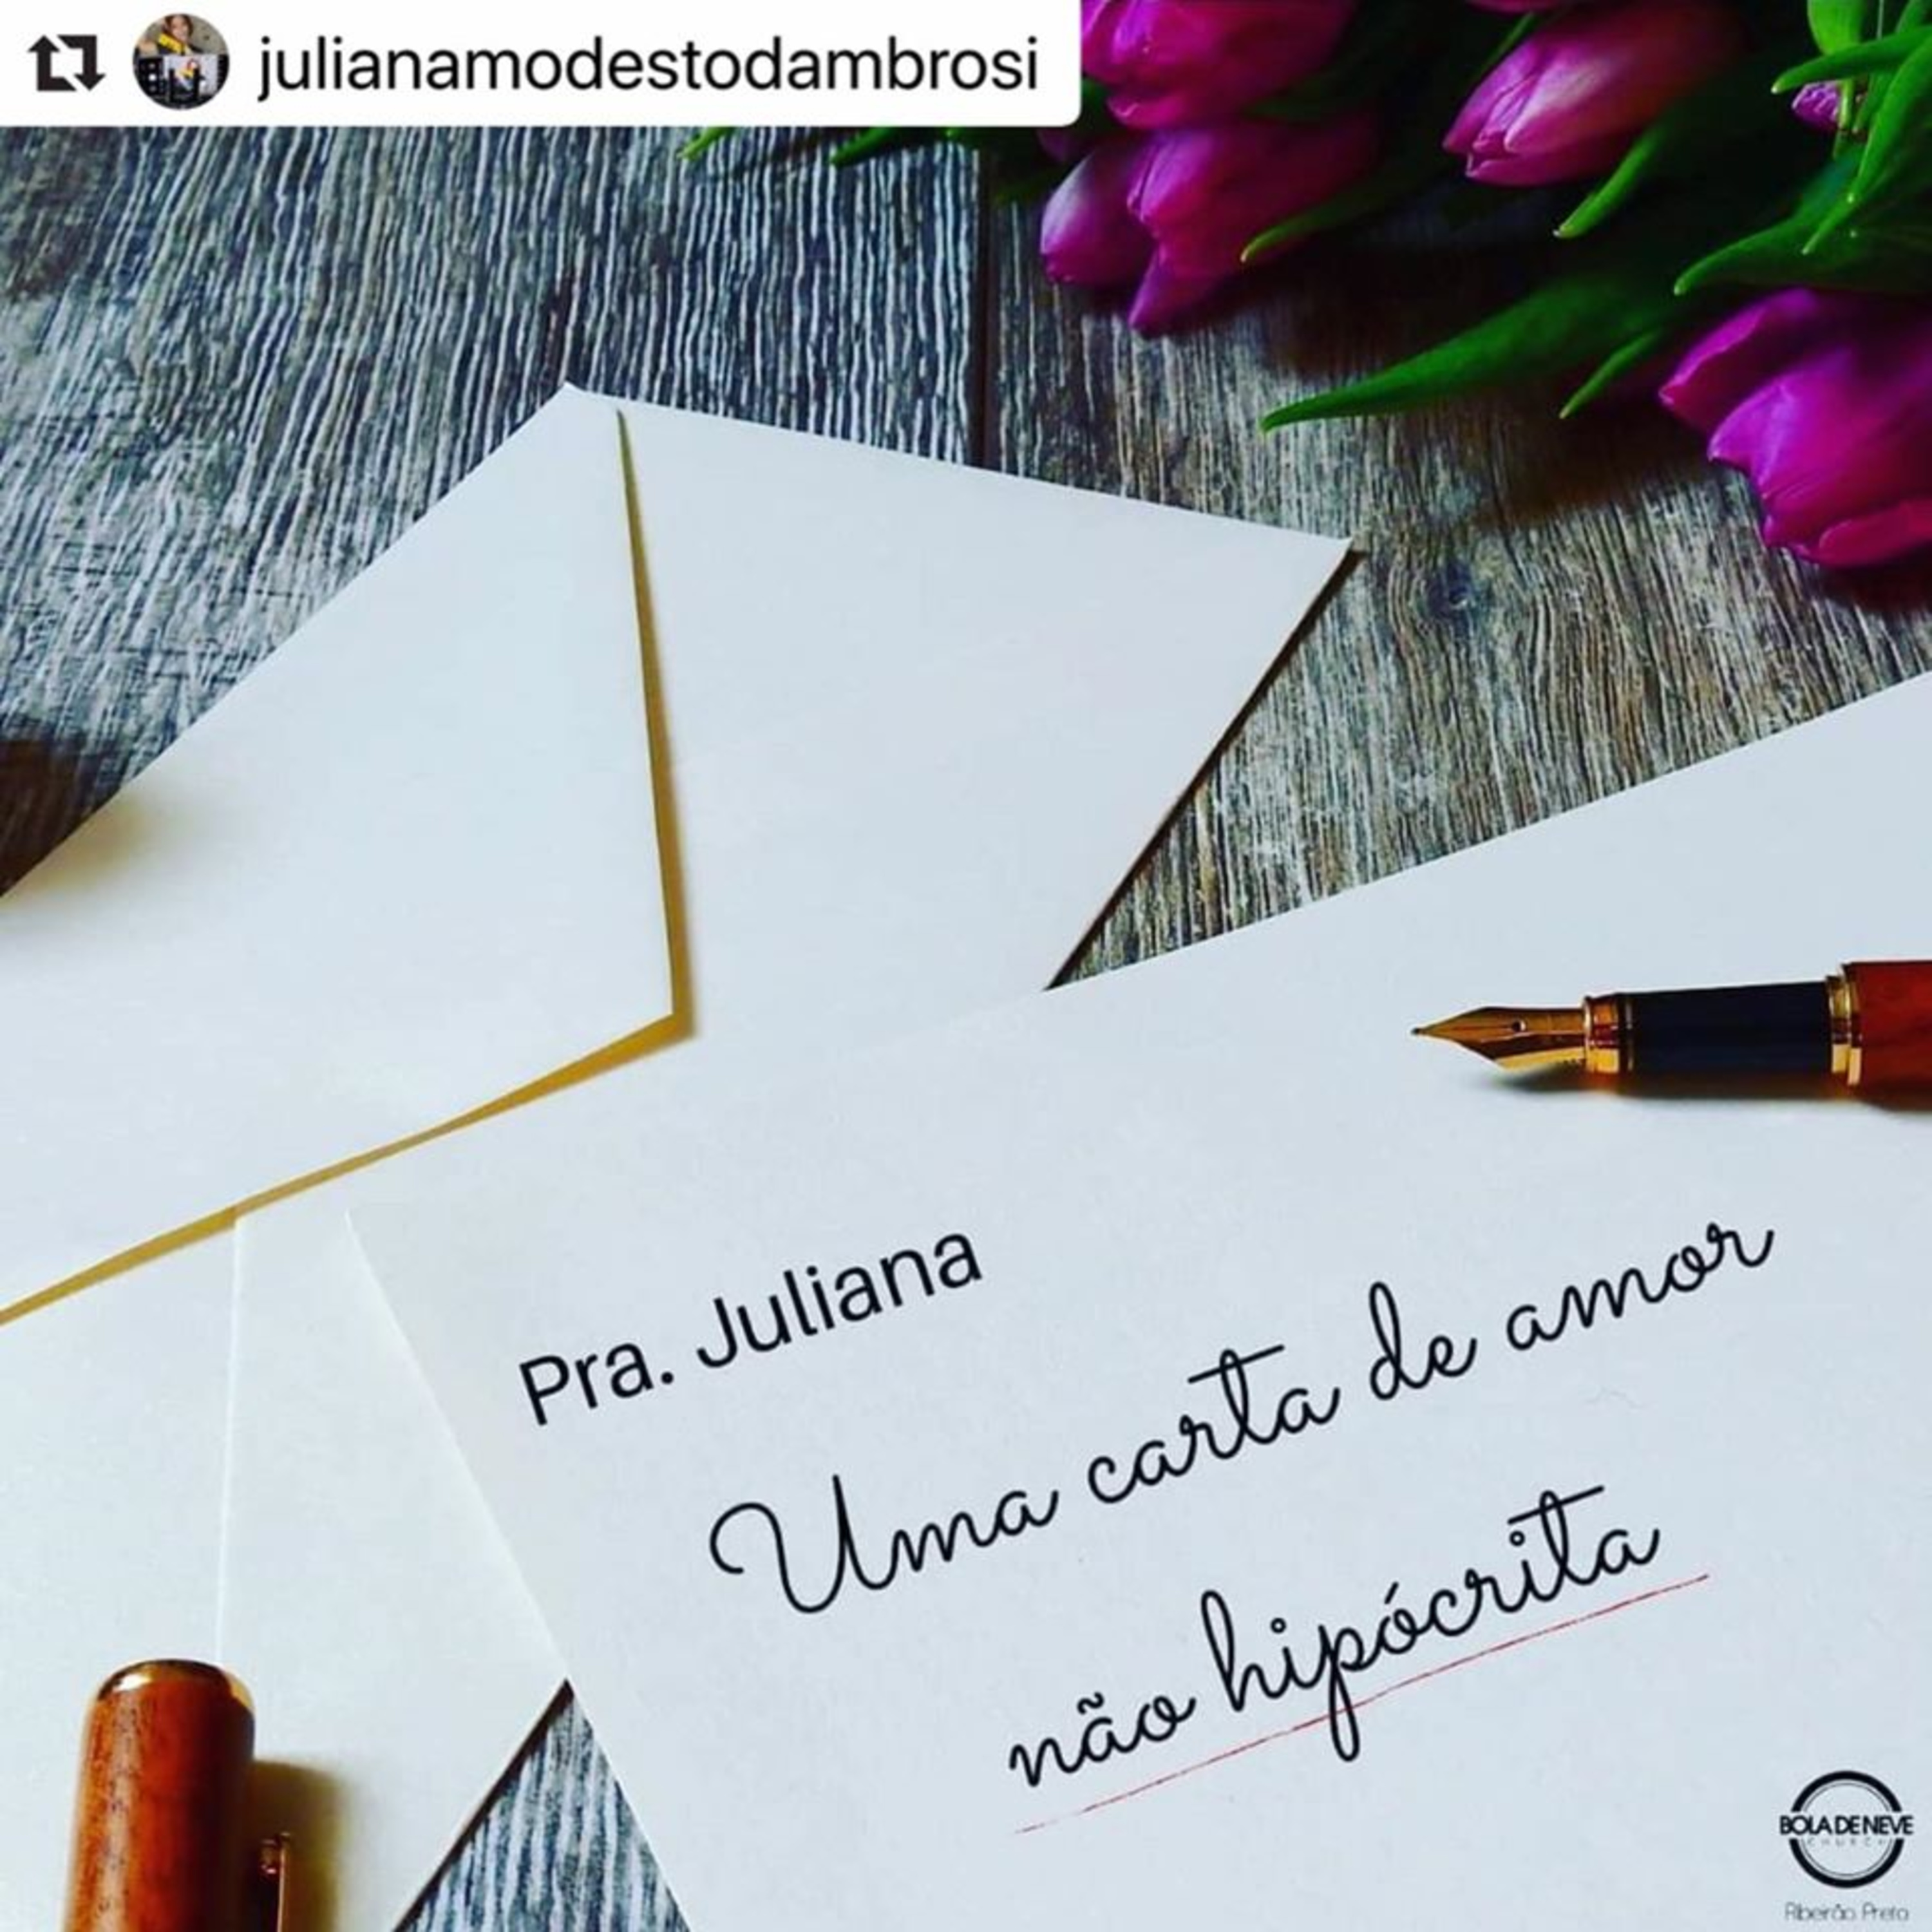 julianamodestodambrosi
Pra. Juliana
Uma carta de amor
não hipócrita
BOLA DE NEVE
CHURCH
Ribeirão Preto